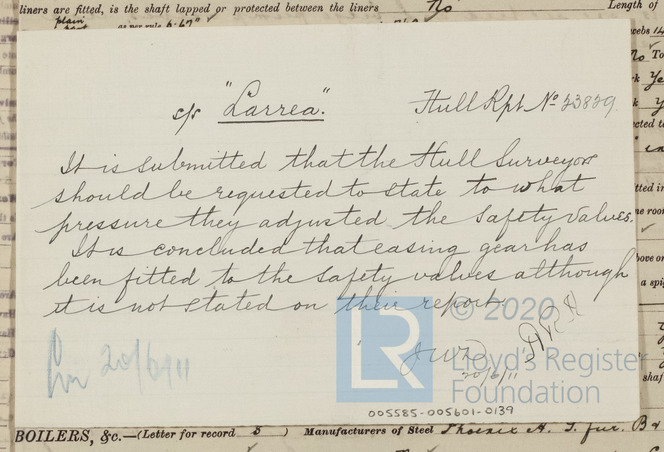 liners are fitted, is the shaft lapped or protected between the liners No Length of
plain
as per rule 6.67"
s/s "Larrea". Hull Rpt No 23829.
It is submitted that the Hull Surveyors
should be requested to state to what
pressure they adjusted the safety valves.
It is concluded that easing gear has
been fitted to the safety valves although
it is not stated on their report.
© 2020
LR
JWD
20/6/11
20/6/11
Lloyd's Register
Foundation
005585-005601-0139
BOILERS, &c.—(Letter for record S ) Manufacturers of Steel Phoenix A. G. für B